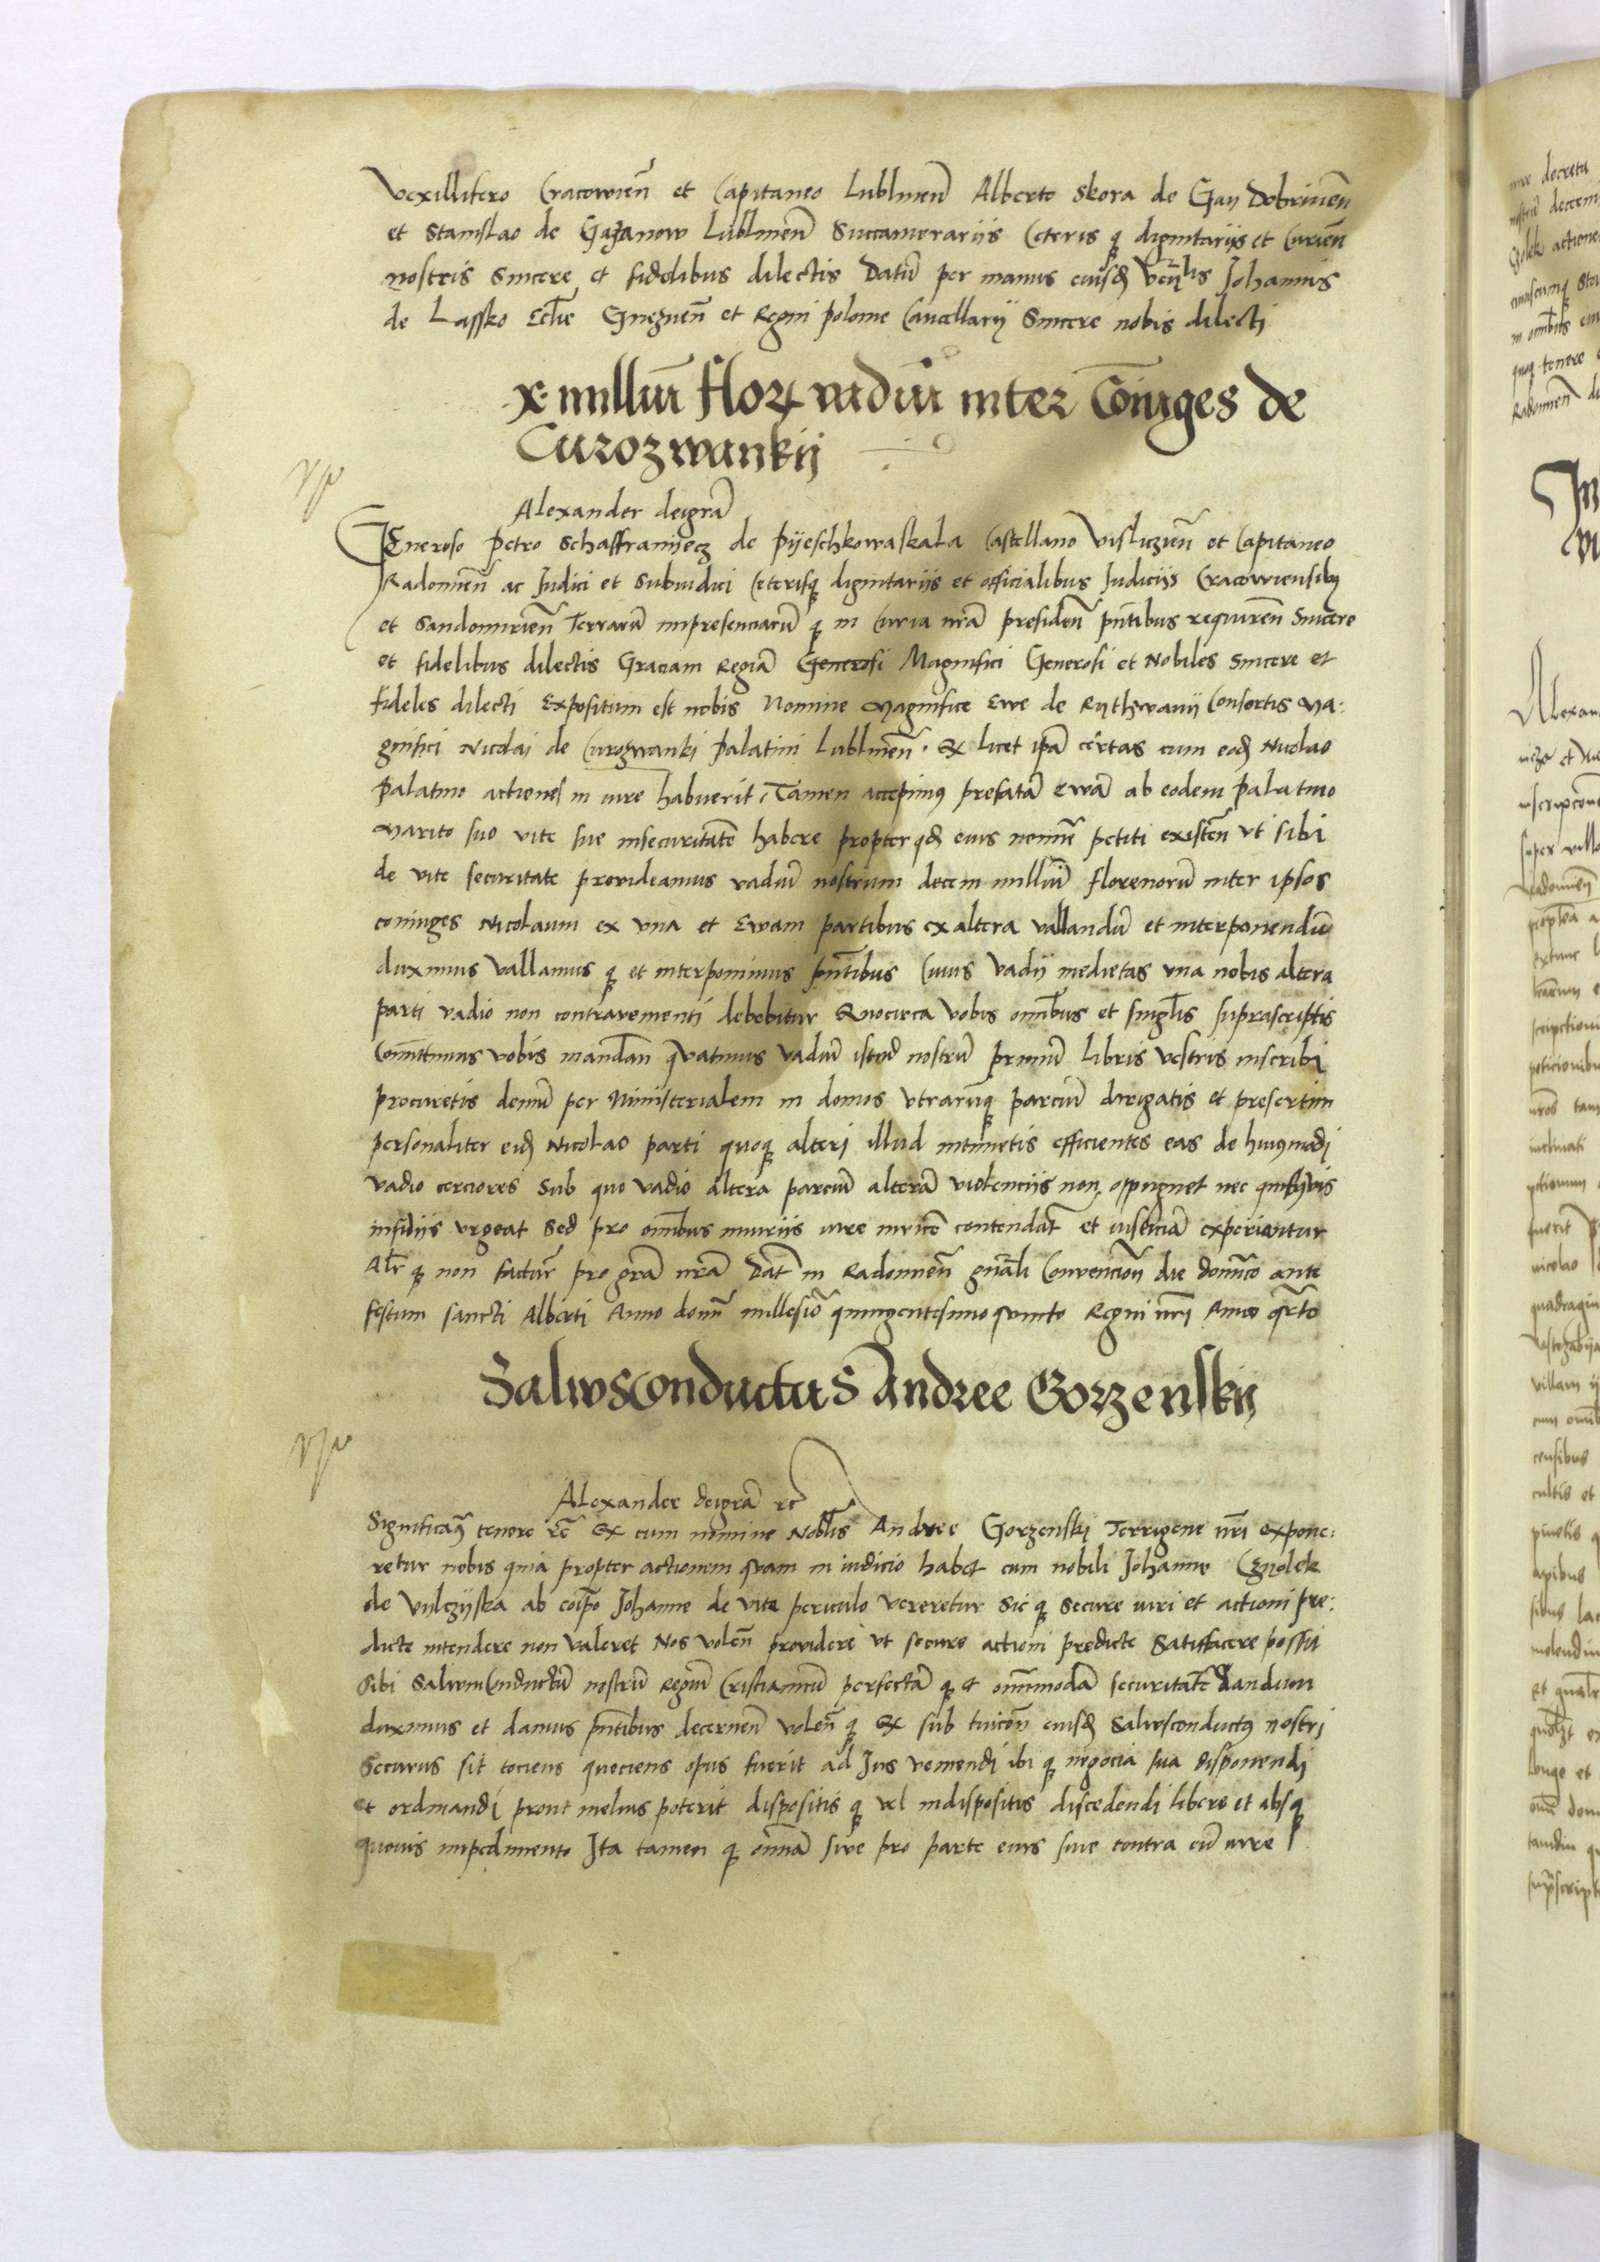 Vexillifero Cracowieñ et Capitaneo Lublineñ Alberto Skora de Gay Dobrineñ
et Stanislao de Gazanow Lublineñ Succamerariis Ceteris qȝ dignitariis et Curieñ
nostris Sincere et fidelibus dilectis Datū per manus eiusdē Veñlis Johannis
de Lassko Eccłie Gnezneñ et Regni polonie Cancellarij Sincere nobis dilecti
X milliū floꝝ vadiū inter Cōiuges de
Curozwankij
Alexander dei grã
Generoso Petro Schaffranyecz de Pyeschkowaskala Castellano Vislicieñ et Capitaneo
Radomieñ ac Judici et Subiudici Ceterisqȝ dignitariis et officialibus Judiciis Cracowiensibus
et Sandomirieñ Terrarū impresenciarū qȝ in Curia nr̃a presideñ pñtibus requireñ Sincere
et fidelibus dilectis Graciam Regiã Generosi Magnifici Generosi et Nobiles Sincere et
fideles dilecti Expositum est nobis Nomine Magnifice Ewe de Rythwany Consortis Ma:
gnifici Nicolai de Curozwanki Palatini Lublineñ. Qꝫ licet ipã certas cum eodē Nicolao
Palatino actiones in iure habuerit, Tamen accepimus prefatã Ewã ab eodem palatino
Marito suo vite sue insecuritatē habere propter qđ eius nomīe petiti existeñ vt sibi
de vite securitate provideamus vadiū nostrum decem milliū florenorū inter ipsos
coniuges Nicolaum ex vna et Ewam partibus ex altera vallandū et interponendū
duximus Vallamus qȝ et interponimus pñtibus Cuius Vadij medietas vna nobis altera
parti vadio non contravenienti debebitur Quocirca vobis omībus et singlis suprascriptis
Comittimus vobis mandañ quatinus vadiū istud nostrū primū libris vestris inscribi
procuretis demū per Ministerialem in domos vtrarumqȝ parciū dirigatis et presertim
personaliter eidē Nicolao parti quoqȝ alteri illud intimetis efficientes eas de huiusmodi
vadio cerciores Sub quo vadio altera parciū alterã violenciis non oppugnet nec quibusvis
insidiis vrgeat Sed pro omībus iniuriis iure invicē contendãt et iusticiã experiantur
Alr̃ qȝ non factur̃ pro grã nr̃a Dat̃ in Radomieñ gñali Convencioñ die domīco ante
festum sancti Alberti Anno domī millesīo quingentesimo quinto Regni nr̃i Anno qr̃to
Salwsconductus Andree Gorzenskij
Alexander dei grã rc̃
Significam̃ tenore rc̃ Qꝫ cum nomine Nobłis Andree Gorzenski Terrigene nr̃i expone:
retur nobis quia propter actionem quam in iudicio habet cum nobili Johanne Gzolek
de Vylczyska ab eoip̃o Johanne de vite periculo vereretur Sic qȝ Secure iuri et actioni pre:
dicte intendere non valeret Nos voleñ providere vt secure actioni predicte Satiffacere possit
Sibi Salwmconductū nostrū Regiū Cristianicū perfectã qȝ et omīmodã securitatē dandum
duximus et damus pñtibus decerneñ voleñ qȝ Qꝫ sub tuicõe eiusdē Salwsconductus nostri
Securus sit tociens quociens opus fuerit ad Jus veniendi ibi qȝ negocia sua disponendi
et ordinandi prout melius poterit dispositis qȝ vel indispositis discedendi libere et absqȝ
quovis impedimento Ita tamen qȝ omīa sive pro parte eius sive contra eū iure